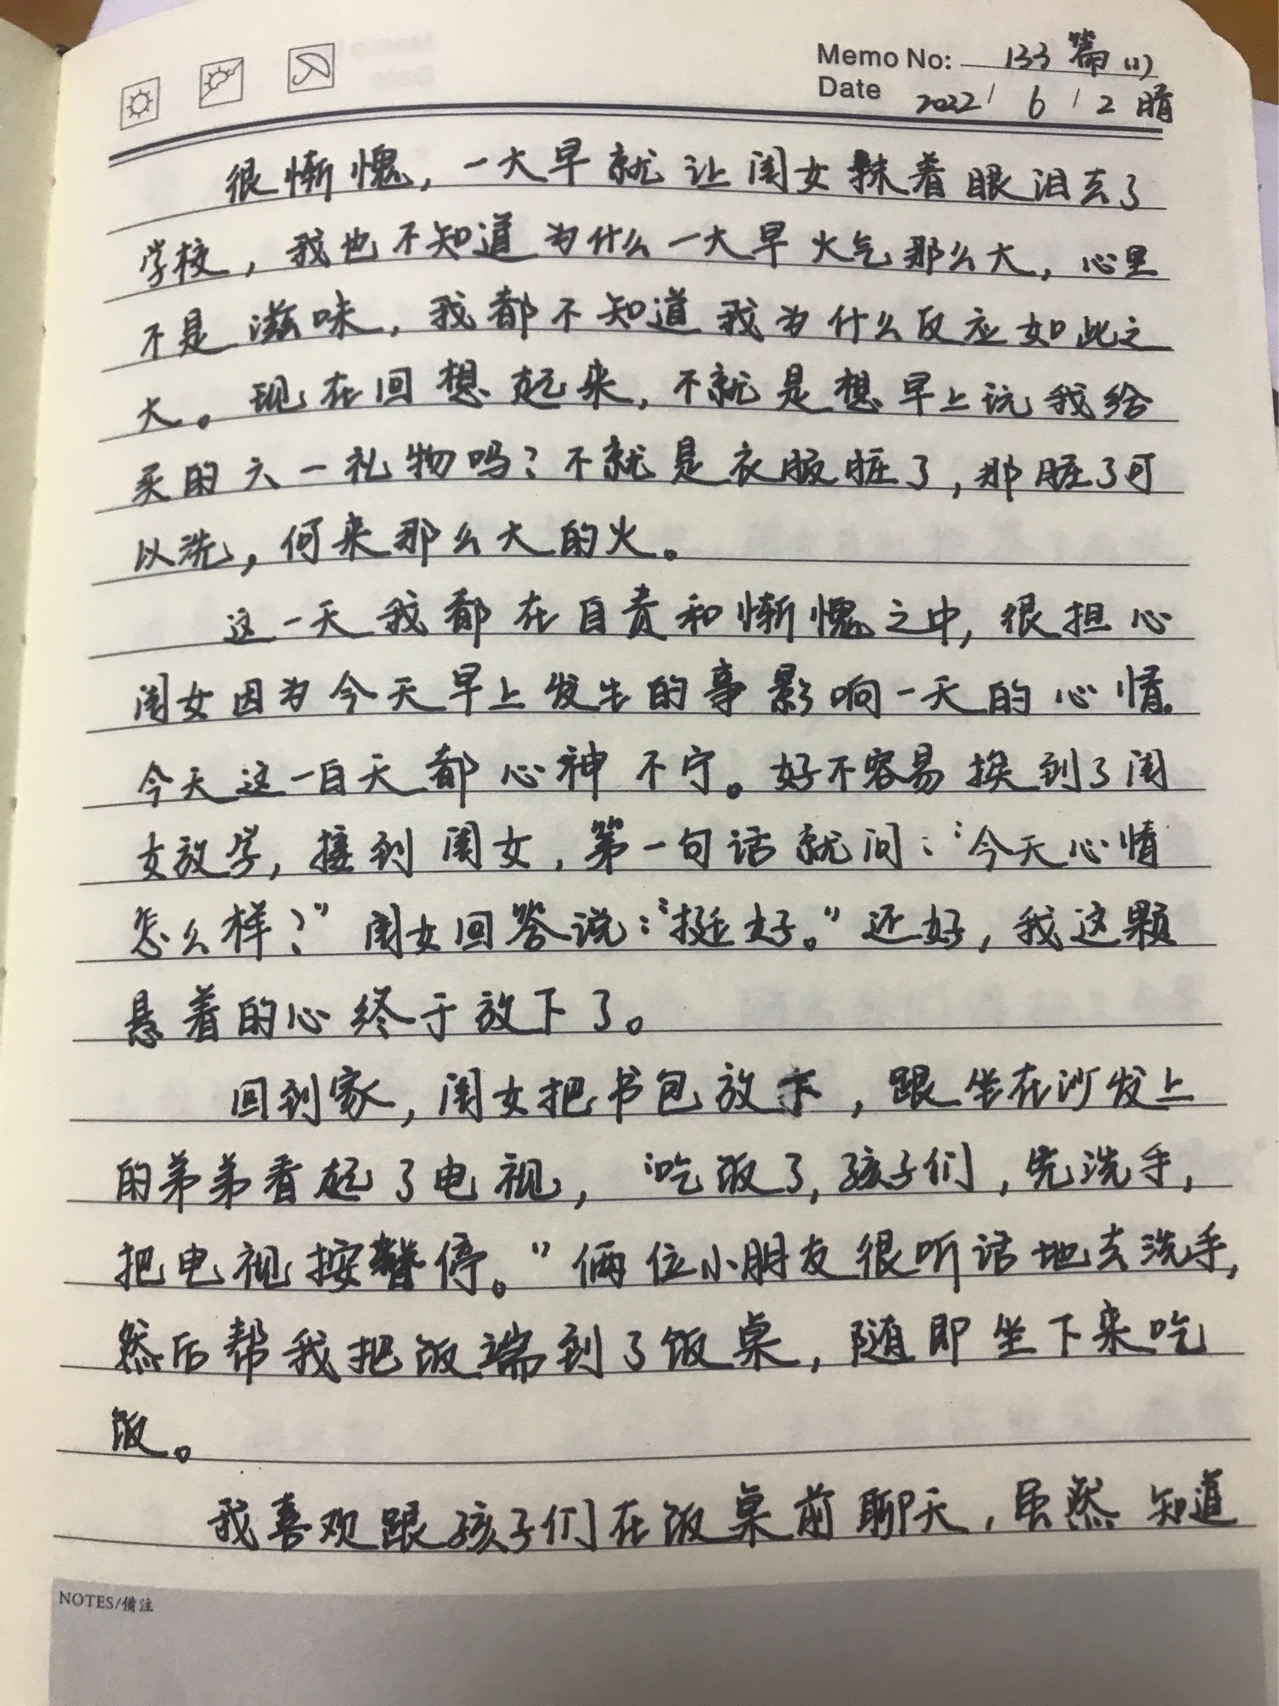 Memo No: 133篇(1)
Date 2022/6/2 晴
很惭愧，一大早就让闺女抹着眼泪去了
学校，我也不知道为什么一大早火气那么大，心里
不是滋味，我都不知道我为什么反应如此之
大。现在回想起来，不就是想早上说我给
买的六一礼物吗？不就是衣服脏了，那脏了可
以洗，何来那么大的火。
这一天我都在自责和惭愧之中，很担心
闺女因为今天早上发生的事影响一天的心情。
今天这一白天都心神不宁。好不容易挨到了闺
女放学，接到闺女，第一句话就问：“今天心情
怎么样？”闺女回答说：“挺好。”还好，我这颗
悬着的心终于放下了。
回到家，闺女把书包放下，跟坐在沙发上
的弟弟看起了电视，“吃饭了，孩子们，先洗手，
把电视按暂停。”俩位小朋友很听话地去洗手，
然后帮我把饭端到了饭桌，随即坐下来吃
饭。
我喜欢跟孩子们在饭桌前聊天，虽然知道
NOTES/備注